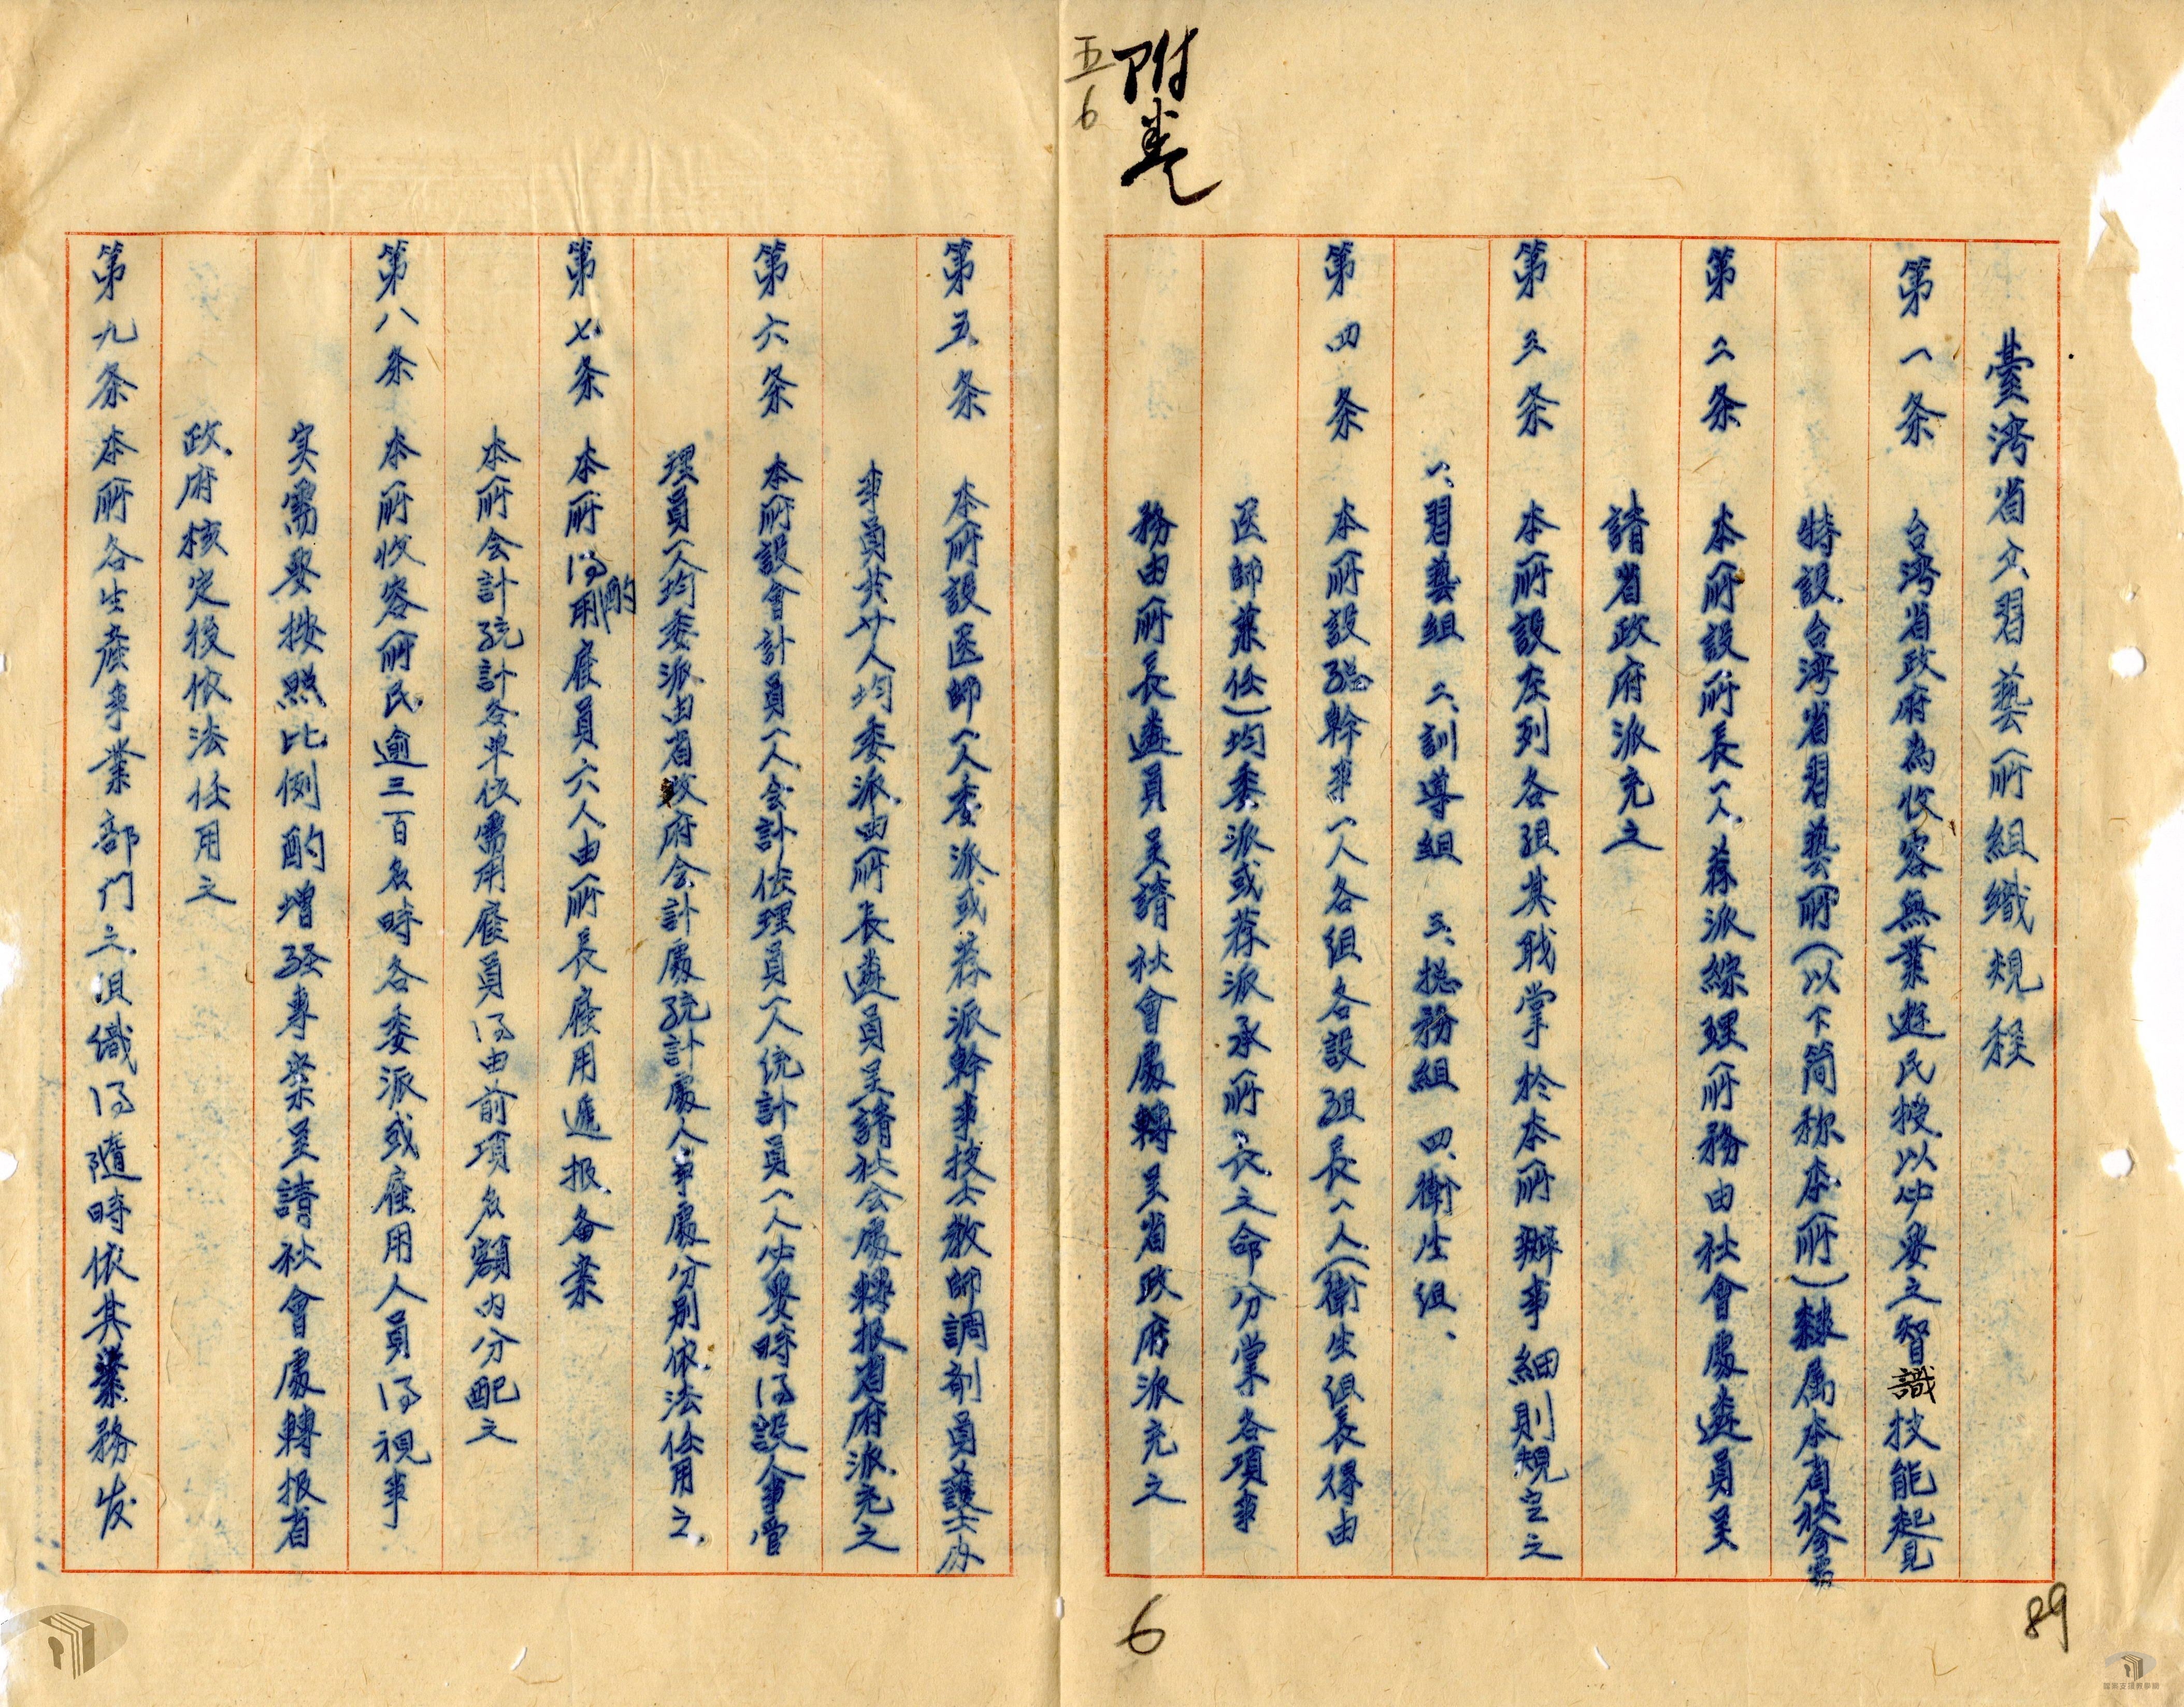 附卷
五
6
臺湾省立習藝所組織規程
第一条 台湾省政府為收容無業遊民授以必要之智識技能起見
特設台湾省習藝所(以下简称本所)隸属本省社会處
第二条 本所設所長一人荐派綜理所務由社會處遴員呈
請省政府派充之
第三条 本所設左列各組其职掌於本所辦事細則規定之
一、習藝組 二、訓導組 三、総務組 四、衛生組、
第四条 本所設總幹事一人各組各設組長一人(衛生組長得由
医師兼任)均委派或荐派承所長之命分掌各項事
務由所長遴員呈請社會處轉呈省政府派充之
第五条 本所設医師一人委派或荐派幹事技士教師調剂員護士办
事員共廿人均委派由所長遴員呈請社会處轉报省府派充之
第六条 本所設會計員一人会計佐理員一人統計員一人必要時得設人事管
理員一人均委派由省政府会計處統計處人事處分別依法任用之
第七条 本所得酌用雇員六人由所長雇用遞报备案
本所会計統計各单位需用雇員得由前項名額内分配之
第八条 本所收容所民逾三百名時各委派或雇用人員得視事
实需要按照比例酌增經專案呈請社會處轉报省
政府核定後依法任用之
第九条 本所各生產事業部門之組織得隨時依其業務发
6
89